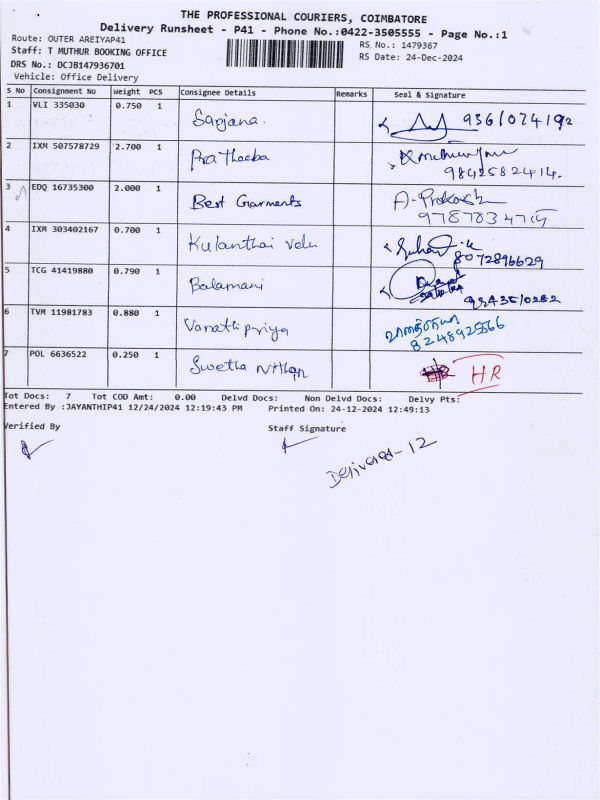 THE PROFESSIONAL COURIERS, COIMBATORE
Delivery Runsheet - P41 - Phone No.:0422-3505555 - Page No.:1
Route: OUTER AREIYAP41 RS No.: 1479367
Staff: T MUTHUR BOOKING OFFICE RS Date: 24-Dec-2024
DRS No.: DCJB147936701
Vehicle: Office Delivery
S No Consignment No Weight PCS Consignee Details Remarks Seal & Signature
1 VLI 335030 0.750 1 Sanjana. 9361074192
2 IXM 507578729 2.700 1 Pratheeba
9842582414.
3 EDQ 16735300 2.000 1 Best Garments A-Prakash
4 IXM 303402167 0.700 1 Kulanthai velu
8072896629
5 TCG 41419880 0.790 1 Balamani
9843510282
6 TVM 11981783 0.880 1 Vanathipriya
8248925566
7 POL 6636522 0.250 1 Swetha Nithan HR
Tot Docs: 7 Tot COD Amt: 0.00 Delvd Docs: Non Delvd Docs: Delvy Pts:
Entered By :JAYANTHIP41 12/24/2024 12:19:43 PM Printed On: 24-12-2024 12:49:13
Verified By Staff Signature
Delivered-12